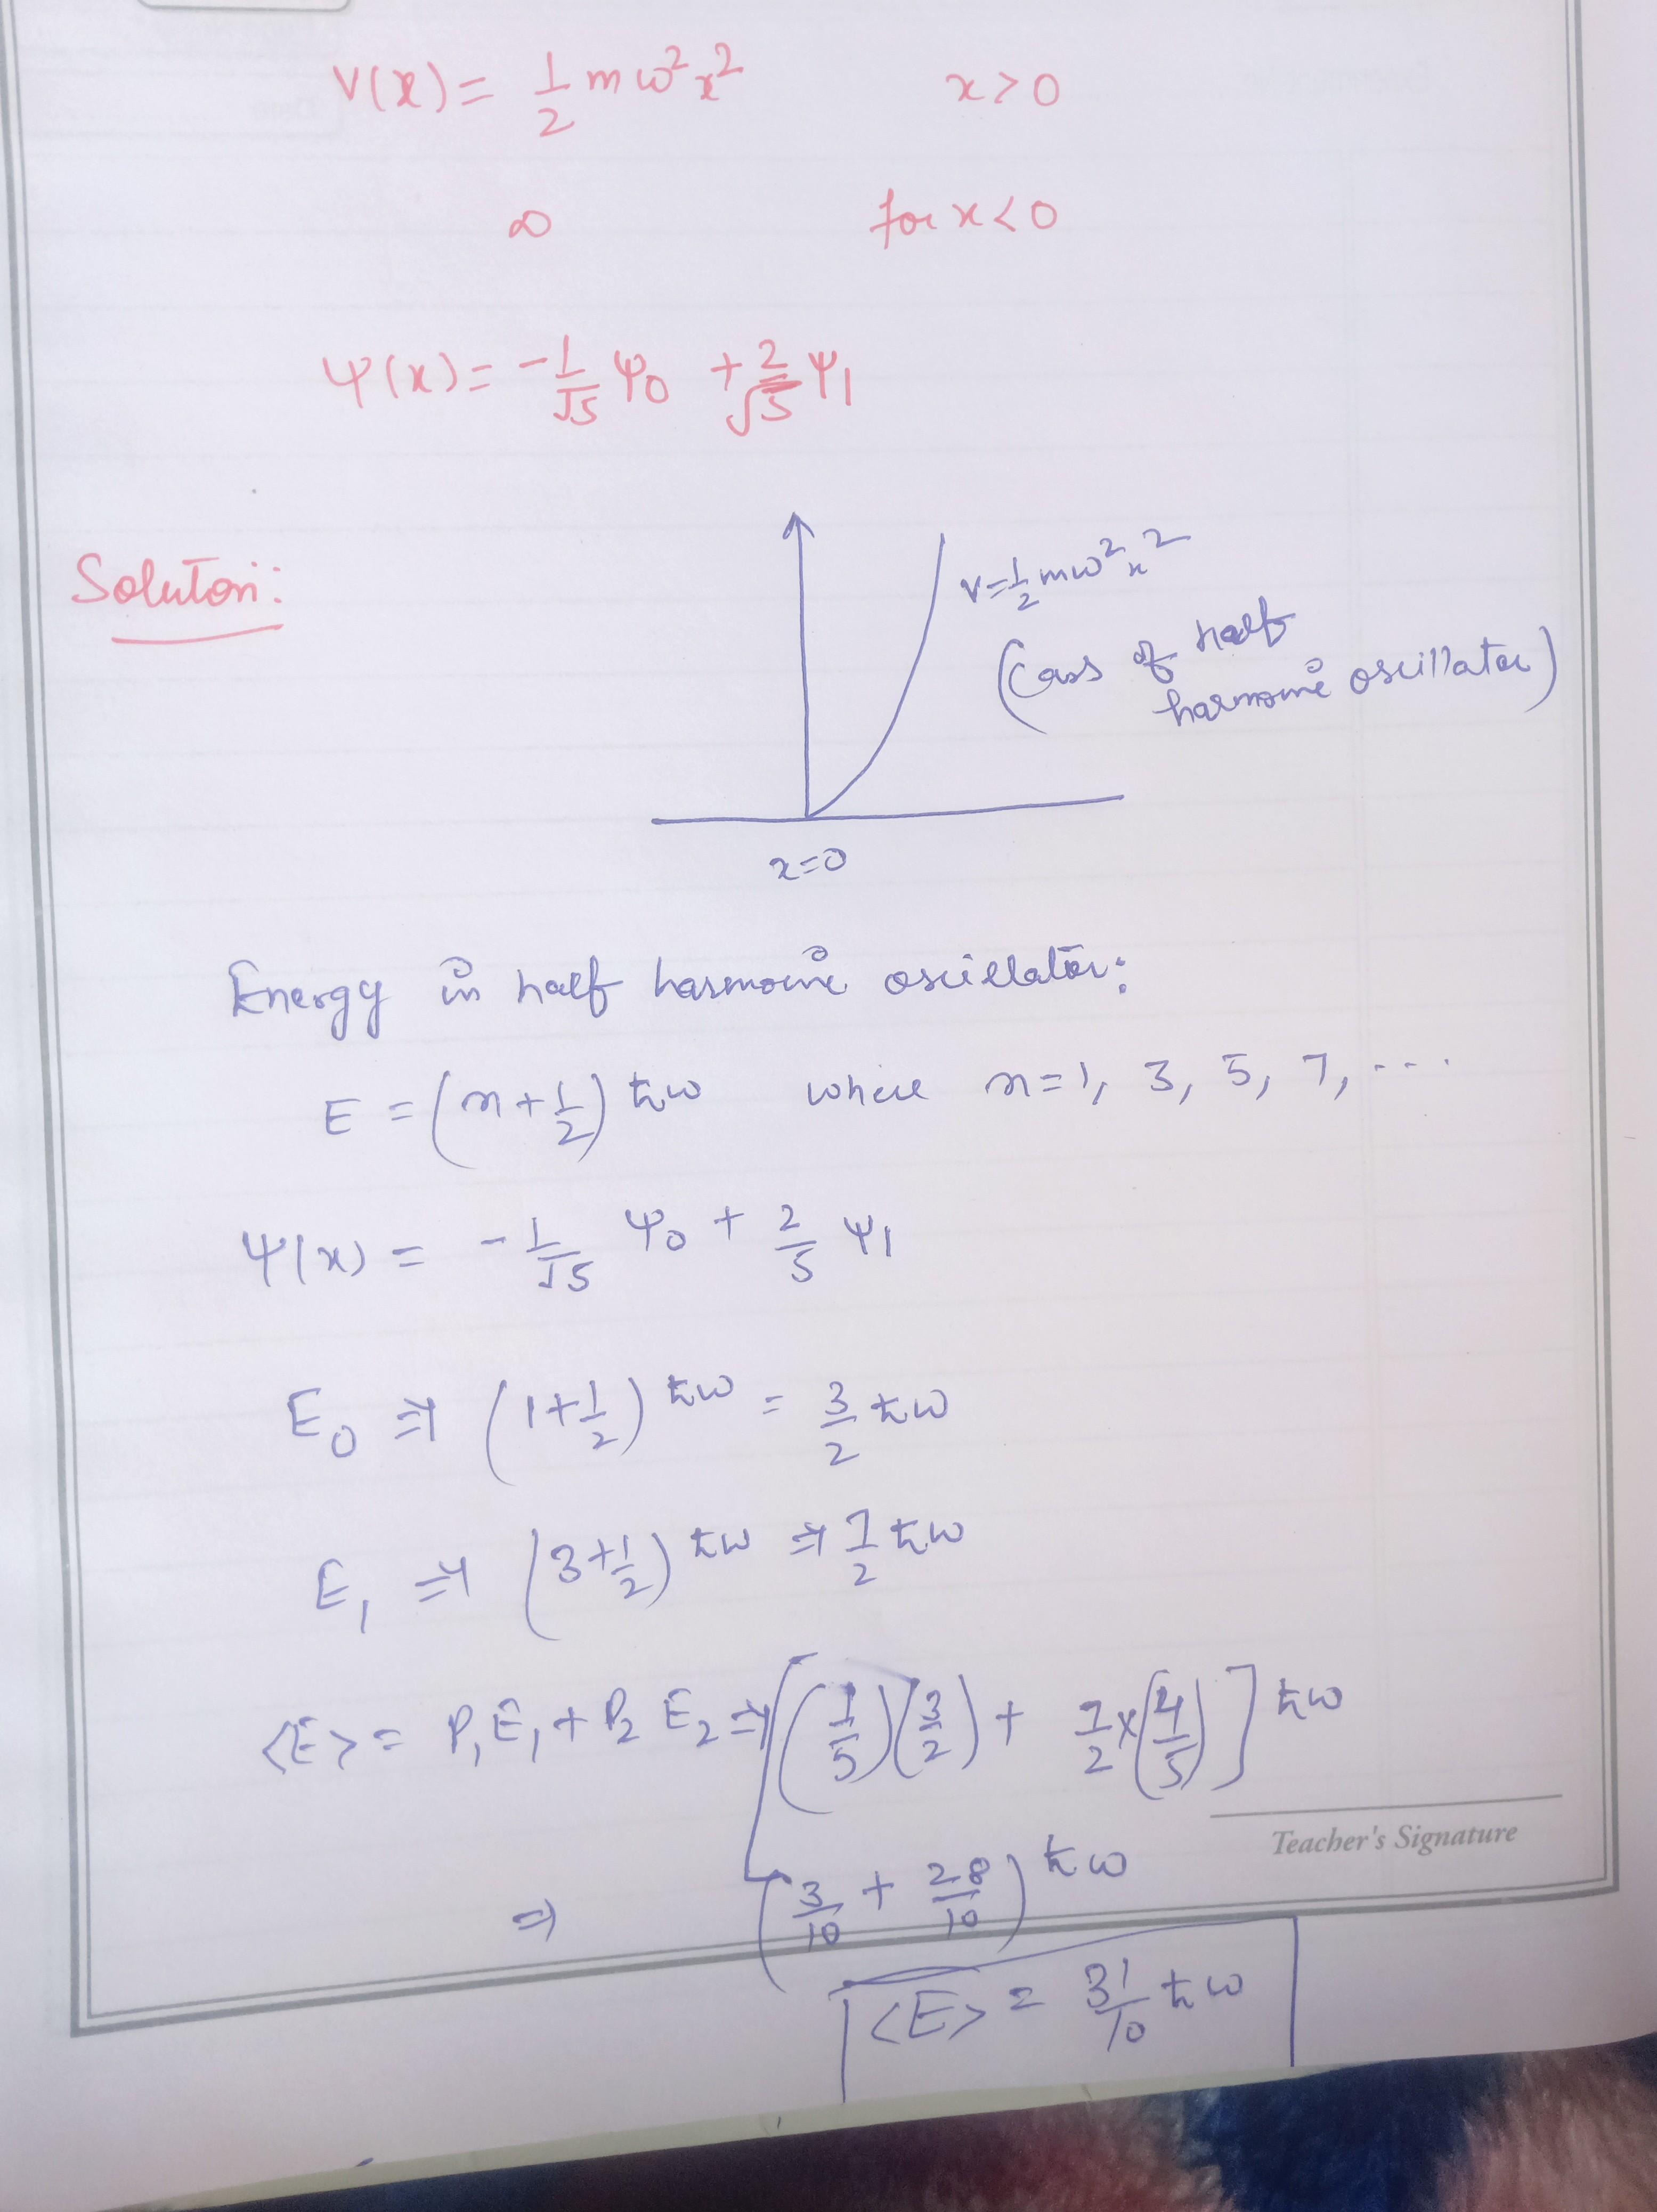 V(x) = 1/2 mω²x² x>0
∞ for x<0
Ψ(x) = -1/√5 Ψ0 + 2/√5 Ψ1
Soluton:
V=1/2 mω²x²
(Cass of half
harmonic oscillator)
x=0
Energy in half harmonic oscillator:
E = (n+1/2) ħω where n=1, 3, 5, 7, ...
Ψ(x) = -1/√5 Ψ0 + 2/5 Ψ1
E0 ⇒ (1+1/2) ħω = 3/2 ħω
E1 ⇒ (3+1/2) ħω ⇒ 7/2 ħω
<E> = P1E1 + P2 E2 ⇒ [(1/5)(3/2) + 7/2 × (4/5)] ħω
Teacher's Signature
⇒ (3/10 + 28/10) ħω
<E> = 31/10 ħω